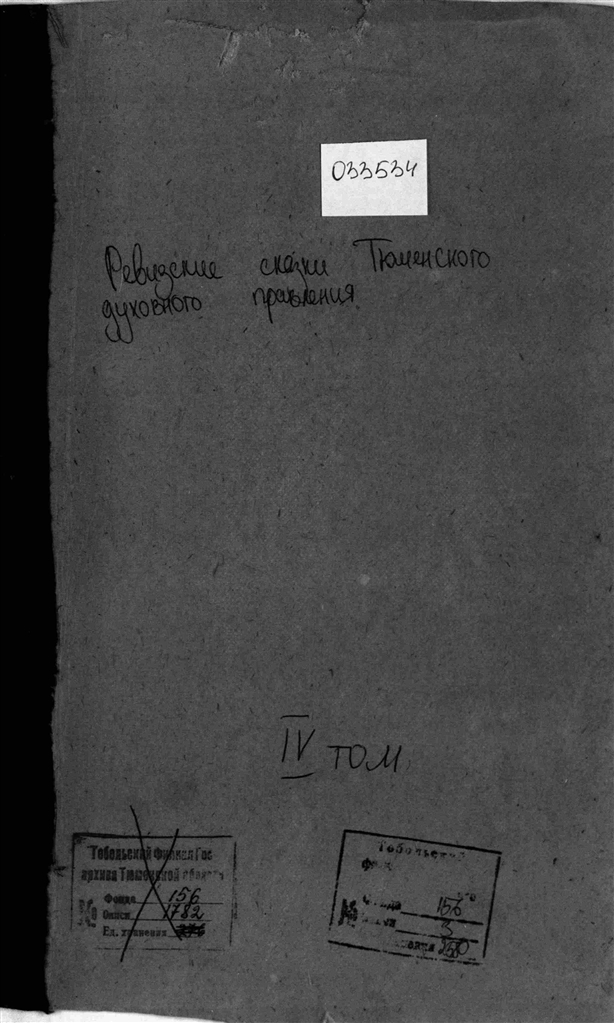 033534
Ревизские сказки Тюменского
духовного правления
IV том
Тобольский Филиал Гос
архива Тюменской области
№ Фонда 156
Описи 1782
Ед. хранения
Тобольский
№ Фонда 156
3